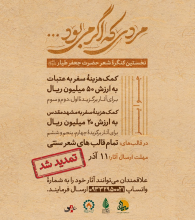 مردی که گرم بود...
نخستین کنگرهٔ شعر حضرت جعفر طیار
کمک‌هزینهٔ سفر به عتبات
به ارزش ۵۰ میلیون ریال
برای آثار برگزیدهٔ اول، دوم و سوم
کمک‌هزینهٔ سفر به مشهد مقدس
به ارزش ۲۰ میلیون ریال
برای آثار برگزیدهٔ چهارم، پنجم و ششم
در قالب‌های: تمام قالب‌های شعر سنتی
مهلت ارسال آثار: ۱۱ آذر
تمدید شد
علاقمندان می‌توانند آثار خود را به شمارهٔ
واتساپ
ارسال فرمایند.